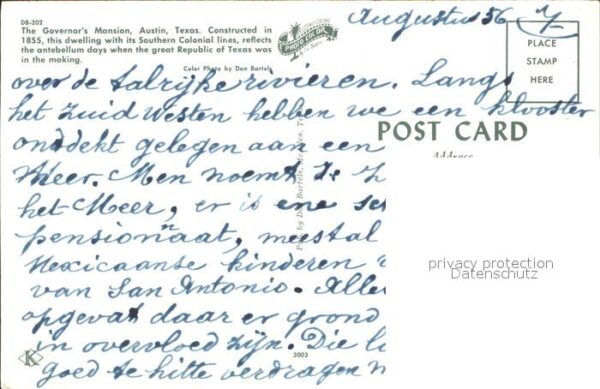 DB-202
The Governor's Mansion, Austin, Texas. Constructed in
1855, this dwelling with its Southern Colonial lines, reflects
the antebellum days when the great Republic of Texas was
in the making.
Color Photo by Don Bartels
Augustus 56
PLACE
STAMP
HERE
over de talrijke rivieren. Langs
het Zuid Westen hebben we een klooster
ontdekt gelegen aan een
POST CARD
Address
Meer. Men noemt de
het Meer, er is ene
pensionnaat, meestal
Mexicaanse kinderen
van San Antonio. Alles
opgevat daar er grond
in overvloed zijn. Die
goed te hitte verdragen
privacy protection
Datenschutz
K
2003